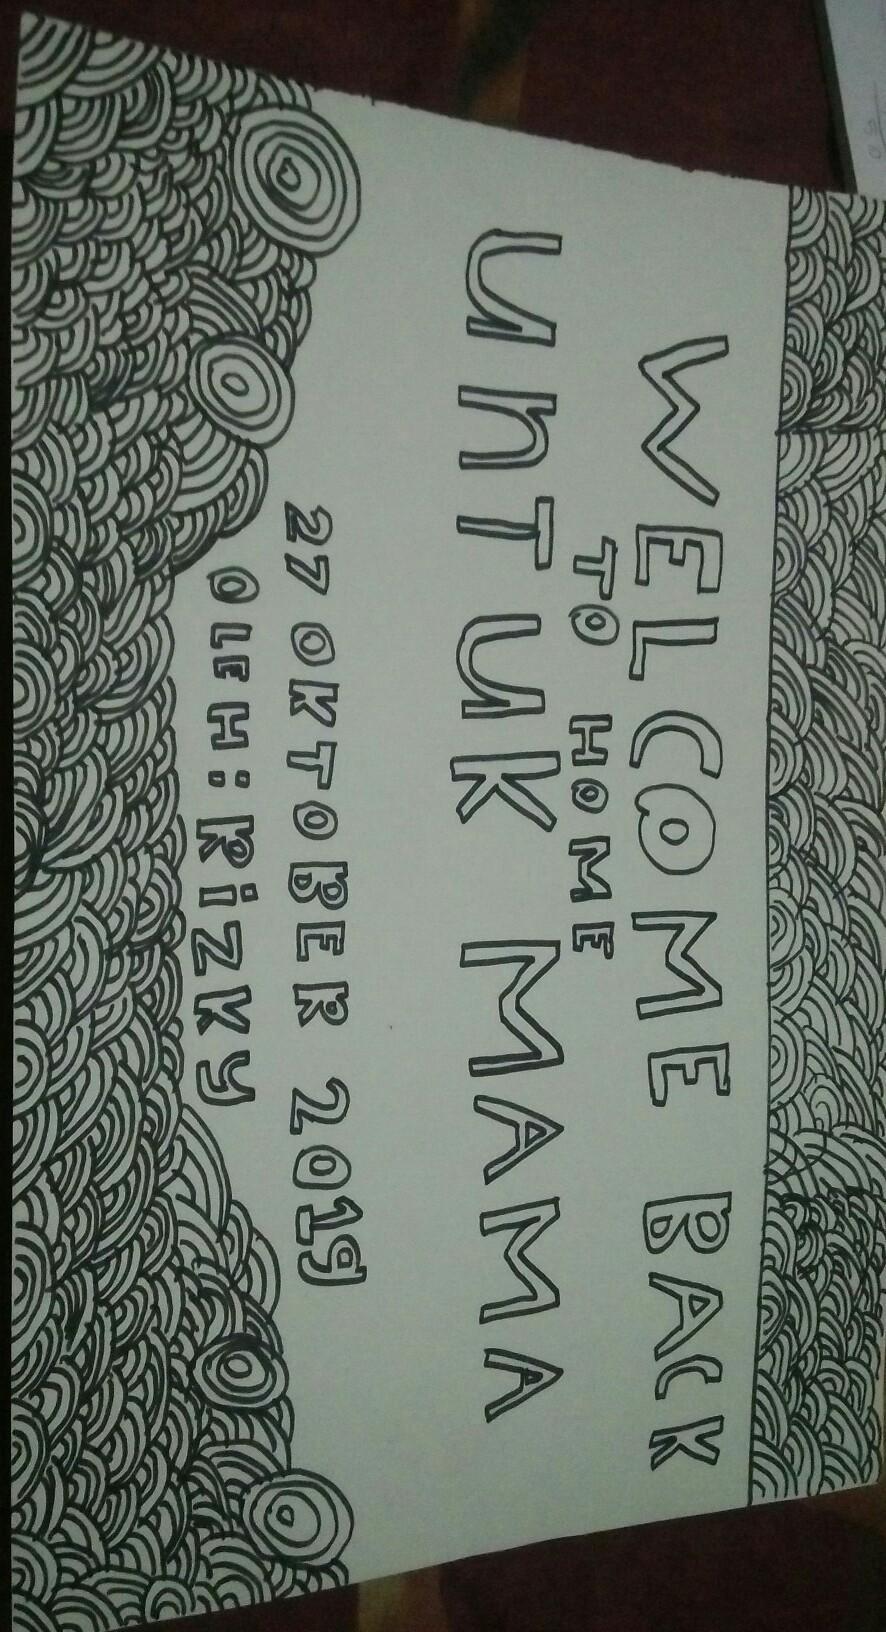 WELCOME BACK
TO HOME
UNTUK MAMA
27 OKTOBER 2019
OLEH : RiZKY